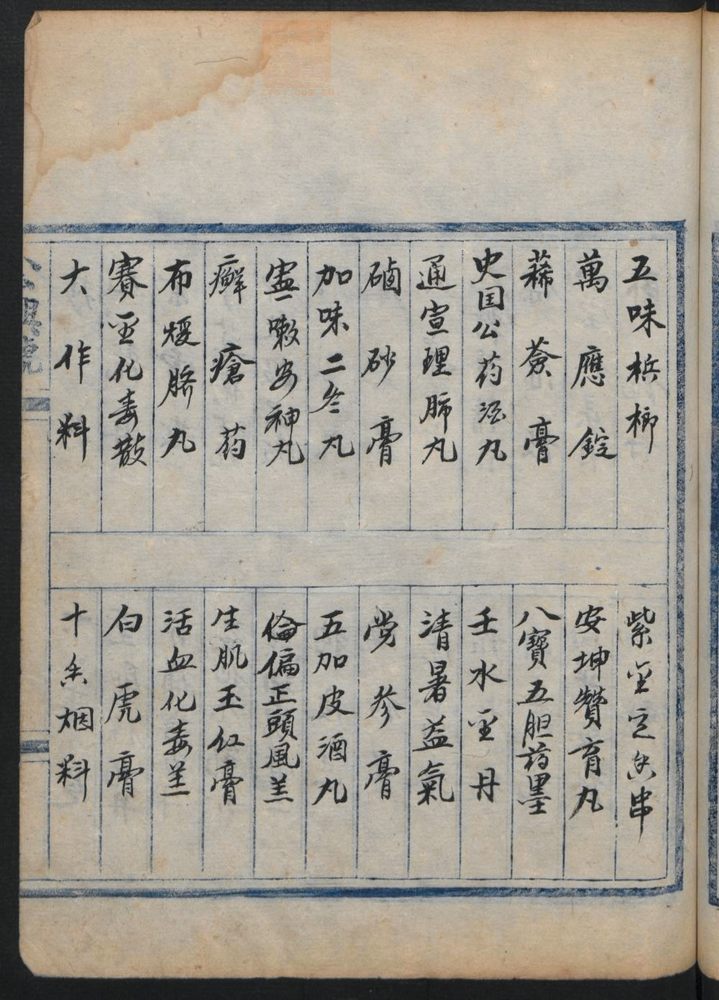 五味梹榔
萬應錠
豨薟膏
史国公药酒丸
通宣理肺丸
硇砂膏
加味二冬丸
寧嗽安神丸
癬瘡药
布煖臍丸
賽金化毒散
大作料
紫金定香串
安坤贊育丸
八寶五胆药墨
壬水金丹
清暑益氣
党參膏
五加皮酒丸
偏正頭風羔
生肌玉红膏
活血化毒羔
白虎膏
十香烟料